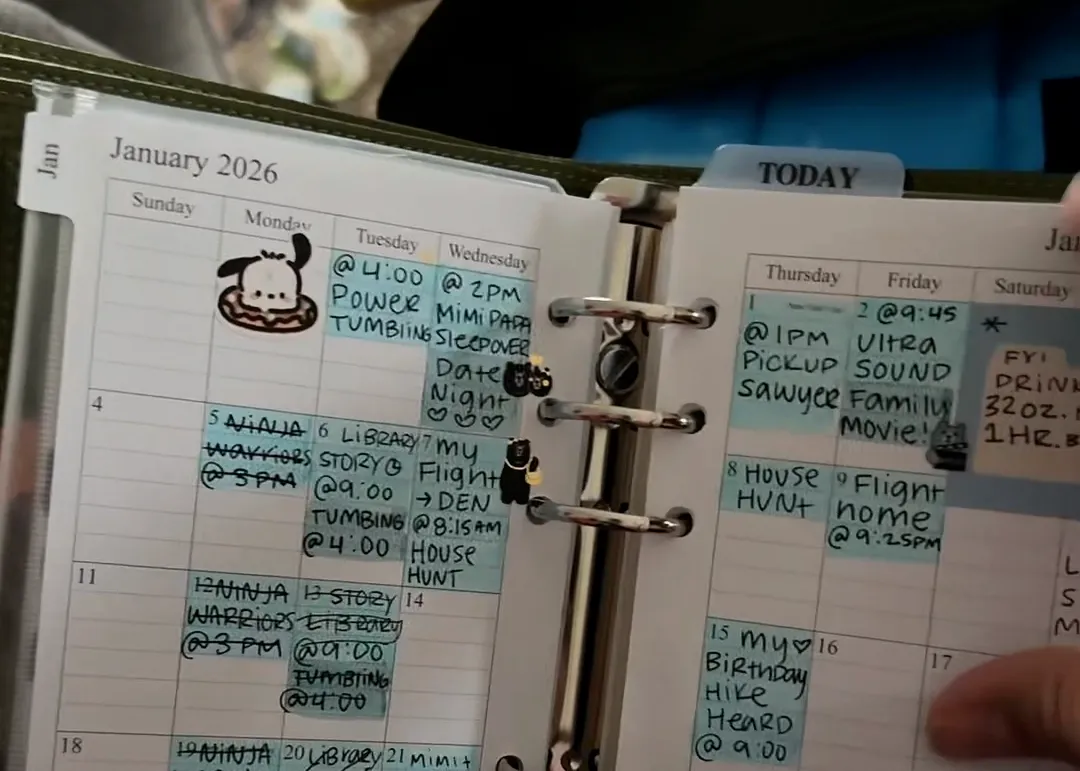 Jan
January 2026
TODAY
Sunday
Monday
Tuesday
Wednesday
Thursday
Friday
Saturday
@ 4:00
POWER
TUMBLING
@ 2PM
MIMI PAPA
SLEEPOVER
Date
Night
♡ ♡ ♡
1
@ 1PM
PICKUP
SAWYER
2 @ 9:45
ULTRA
SOUND
Family
MOVIE!
*
FYI
DRINK
32OZ.
1HR.
4
5 NINJA
WARRIORS
@ 3 PM
6 LIBRARY
STORY
@ 9:00
TUMBING
@ 4:00
7 My
Flight
→ DEN
@ 8:15AM
HOUSE
HUNT
8 HOUSE
HUNT
9 Flight
home
@ 9:25PM
11
12 NINJA
WARRIORS
@ 3 PM
13 STORY
LIBRARY
@ 9:00
TUMBLING
@ 4:00
14
15 My ♡
BIRTHDAY
HIKE
HEARD
@ 9:00
16
17
L
S
M
18
19 NINJA
20 LIBRARY
21 MIMI +